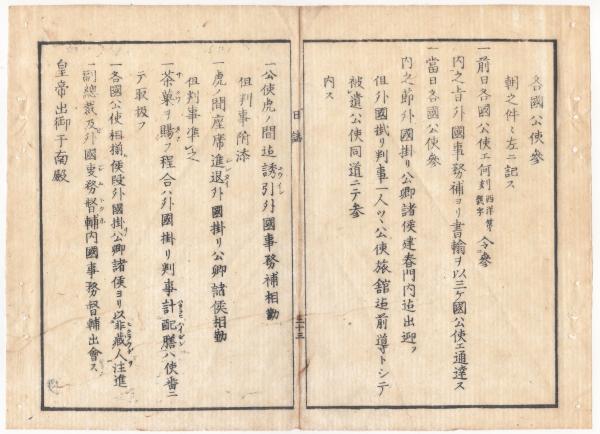 各國公使參
朝之件々左ニ記ス
一前日各國公使エ何刻西洋暦數字ニ令參
内之旨外國事務補ヨリ書翰ヲ以三ケ國公使エ通達ス
一當日各國公使參
内之節外國掛リ公卿諸侯建春門内迄出迎フ
但外國掛リ判事一人ツヽ公使旅舘迄前導トシテ
被遣公使同道ニテ參
内ス
日誌
二十三
一公使虎ノ間迄誘引外國事務補相勤
但判事附添
一虎ノ間座席進退外國掛リ公卿諸侯相勤
但判事準之
一茶菓ヲ賜フ程合ハ外國掛リ判事計配膳ハ使番ニ
テ取扱フ
一各國公使相揃候段外國掛公卿諸侯ヨリ以非藏人注進
一副總裁及外國事務督輔内國事務督輔出會ス
皇帝出御于南殿